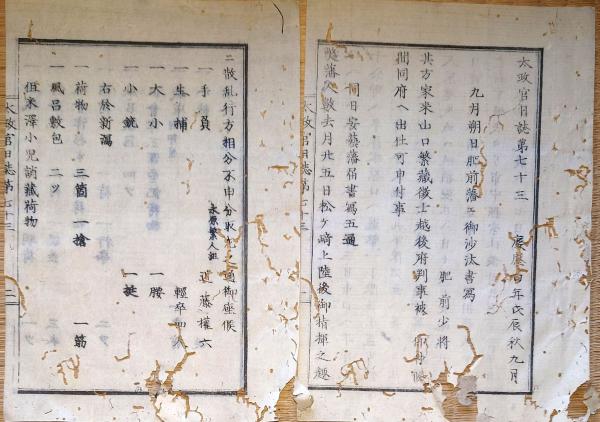 太政官日誌第七十三 慶應四年戊辰秋九月
九月朔日肥前藩ヱ御沙汰書寫
肥前少将
其方家来山口繁藏徴士越後府判事被
間同府ヘ出仕可申付事
同日安藝藩届書寫五通
弊藩人數去月廿五日松ヶ崎上陸後御指揮之趣
太政官日誌第七十三
ニ散乱行方相分不申分取左之通御座候
一手負
近藤權六
一生捕 輕卒四
一大小 一腰
一小銃 一挺
右於新潟
一荷物 三箇 一搶 一筋
一風呂敷包 二ツ
但米澤小児請藏荷物
太政官日誌第七十三